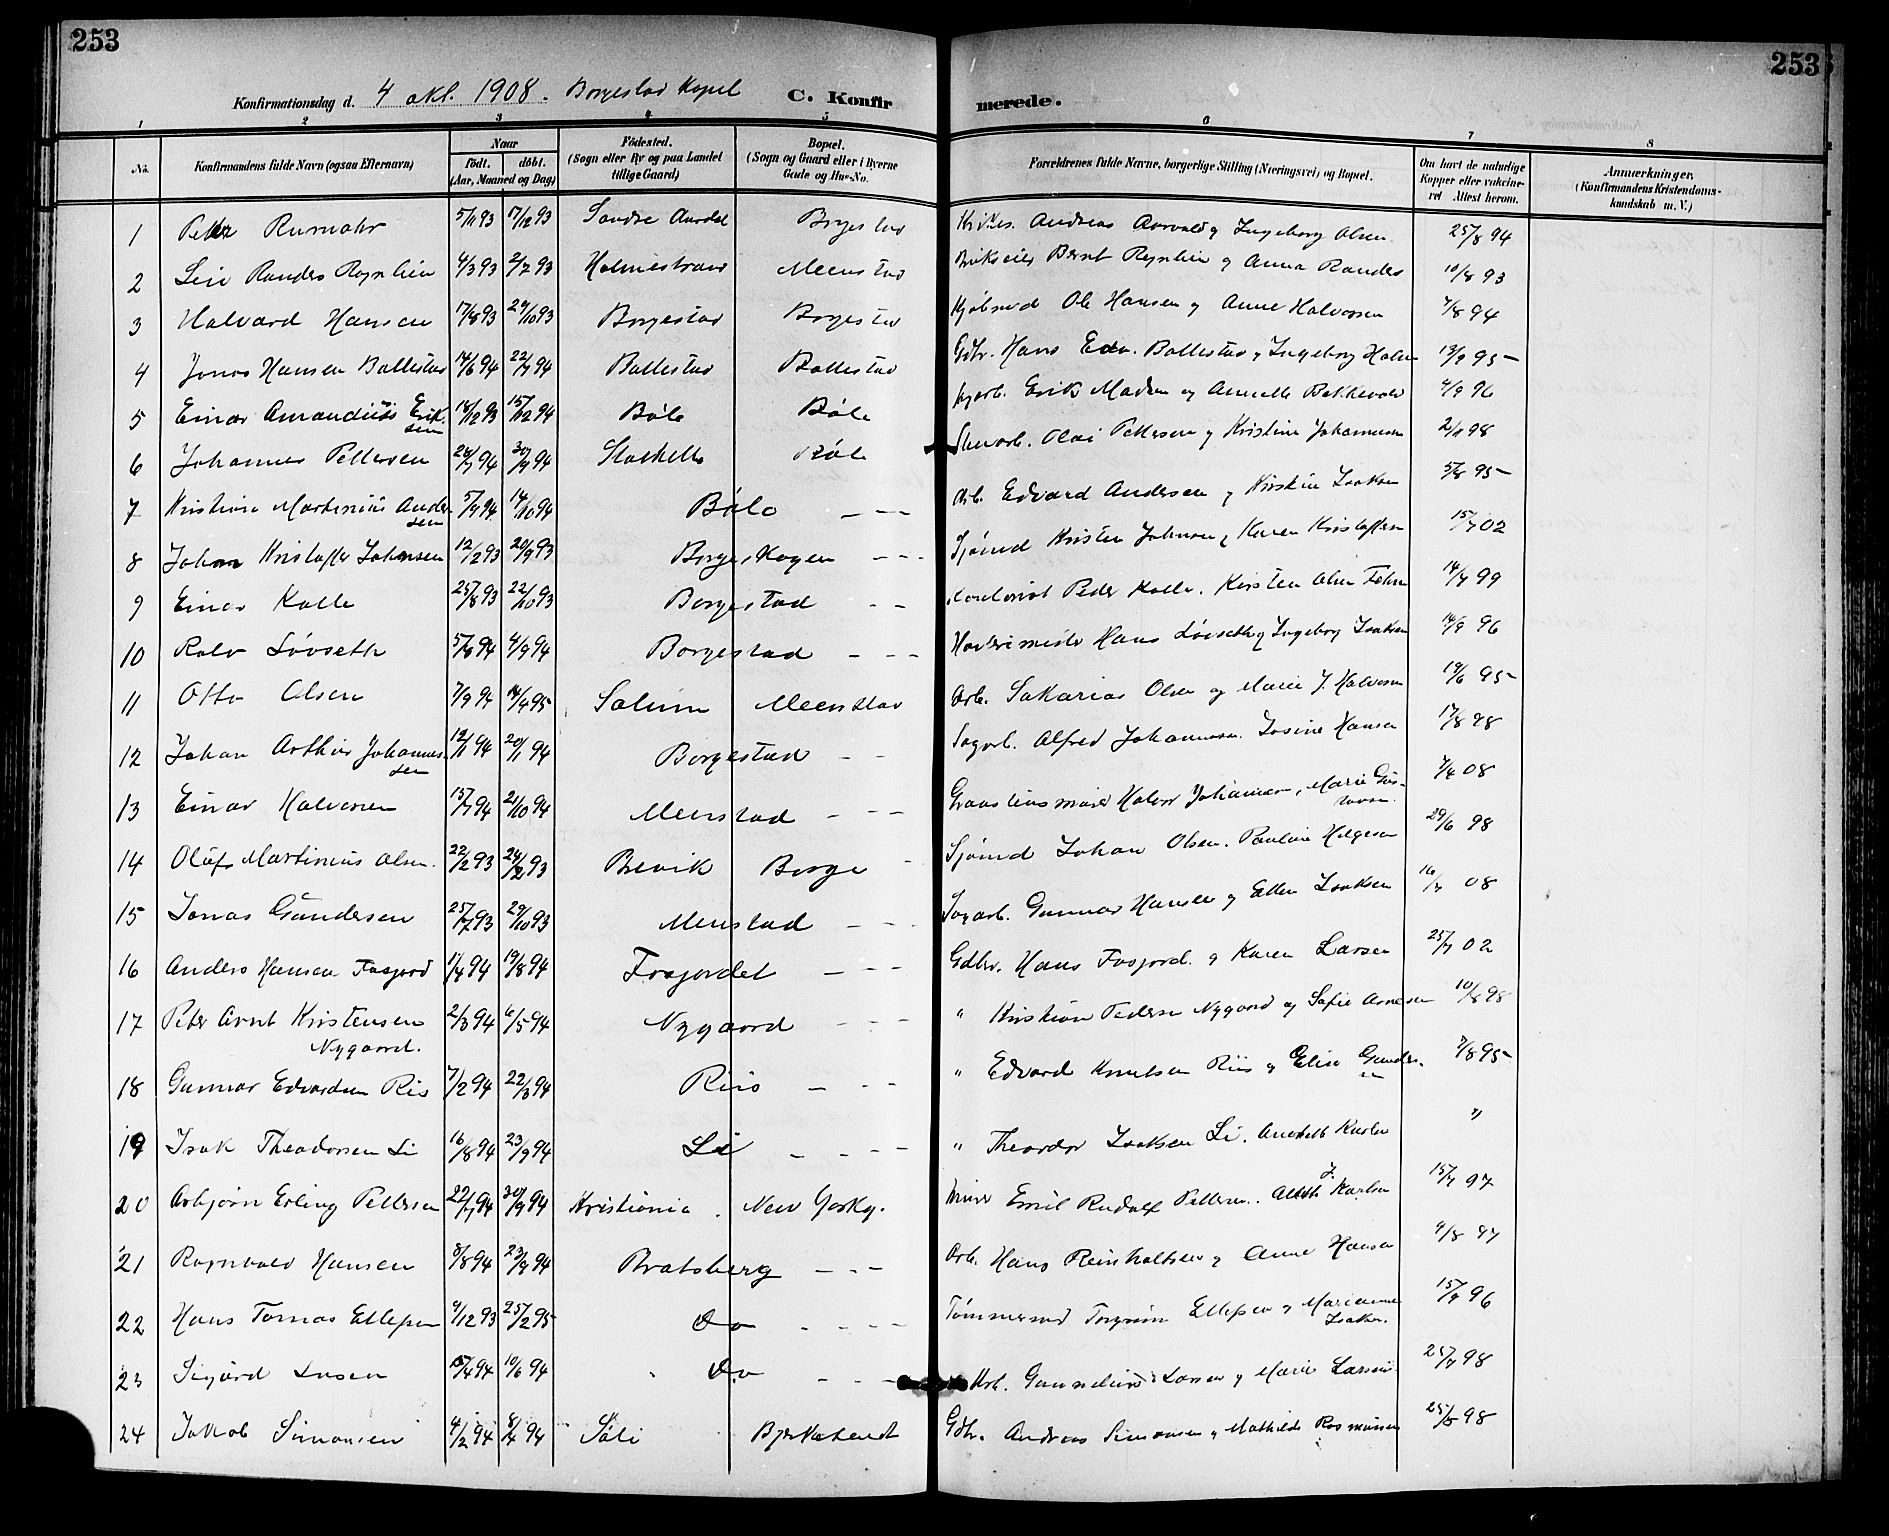 253
253
Konfirmationsdag d. 4 okt. 1908. Borgestad Kapel C. Konfirmerede.
1 2 3 4 5 6 7 8
No. Konfirmandens fulde Navn (ogsaa Efternavn) Naar født. døbt. (Aar, Maaned og Dag) Fødested. (Sogn eller By og paa Landet tillige Gaard) Bopæl. (Sogn og Gaard eller i Byerne Gade og Hus-No. Forældrenes fulde Navne, borgerlige Stilling (Næringsvei) og Bopæl. Om havt de naturlige Kopper eller vaccineret Attest herom. Anmærkninger. (Konfirmandens Kristendomskundskab m. V.)
1 Petter Rumohr 5/11 93 17/12 93 Søndre Aurdal Borgestad Andreas og Ingeborg Olsen 25/8 94
2 Randers 4/3 93 2/7 93 Holmestrand Menstad Bernt og Anna Randers 10/8 93
3 Halvard Hansen 17/8 93 29/10 93 Borgestad Borgestad Ole Hansen og Anne Halvorsen 7/8 94
4 Jonas Hansen Bollestad 14/6 94 22/7 94 Bollestad Bollestad Gdbr. Hans Edv. Bollestad og Ingeborg 13/9 95
5 Einar Amandius Eriksen 18/12 93 15/12 94 Bøle Bøle Erik Madsen og 4/9 96
6 Johannes Pettersen 30/9 94 Stathelle Bøle Olai Pettersen og Kristine Johannesen 2/11 98
7 Kristian Martinius Andersen 5/9 94 14/10 94 Bøle - - - Arb. Edvard Andersen og Kirstine Isaksen 5/8 95
8 Johan Kristoffer Johnsen 12/2 93 20/9 93 Borgeskogen - - - Sjømd Kristen Johnsen og Karen Kristoffersen 15/7 02
9 Einar Kolle 25/8 93 22/10 93 Borgestad - - Peder Kolle. Kirsten Olsen 14/7 99
10 Rolv Løvseth 5/6 94 4/9 94 Borgestad - - - Hans Løvseth og Ingeborg Isaksen 14/9 96
11 Otto Olsen 7/9 94 14/4 95 Solum Menstad Arb. Sakarias Olsen og Maren J. Halvorsen 19/6 95
12 Johan Arthur Johannessen 12/11 94 20/1 94 Borgestad - - Sagarb. Alfred Johannesen. Josine Hansen 17/8 98
13 Einar Halvorsen 15/7 94 21/10 94 Menstad - - - Halvor Johannesen, Marie Gustavsen 7/4 08
14 Oluf Martinius Olsen. 22/2 93 24/12 93 Brevik Borge - Sjømd Johan Olsen. Pauline Helgesen 29/6 98
15 Jonas Gundersen 25/7 93 29/10 93 Menstad - - - Sagarb. Gunnar Hansen og Ellen Isaksen 16/7 08
16 Anders Hansen Fosjord 17/4 94 19/8 94 Fosjordet - - - Gdbr. Hans Fosjord. og Karen Larsen 25/7 02
17 Peter Arnt Kristensen Nygaard. 2/3 94 6/5 94 Nygaard - - - " Kristian Pedersen Nygaard og Sofie Arnesen 10/8 98
18 Gunnar Edvardsen Ris 7/2 94 22/3 94 Riis - - - " Edvard Knutsen Riis og Elise Gundersen 7/8 95
19 Isak Theodorsen Li 16/8 94 23/9 94 Li - - - - " Theodor Isaksen Li. Karlsen "
20 Asbjørn Erling Pettersen 22/7 94 30/9 94 Kristiania. New Yorkg. Murer Emil Rudolf Pettersen. J. Karlsen 15/7 97
21 Ragnvald Hansen 8/8 94 23/9 94 Bratsberg - - - Arb. Hans Reinholtsen og Anne Hansen 9/8 97
22 Hans Tomas Ellefsen 9/12 93 25/2 95 Do - - - - Tømmermd Torgrim Ellefsen og Marianne Isaksen. 15/9 96
23 Sigurd Larsen 15/4 94 10/6 94 Do - - - Arb. Gunnelius Larsen og Marie Larsen 25/7 98
24 Jakob Simonsen 4/2 94 8/4 94 Søli Bjerketvedt Gdbr. Andreas Simonsen og Mathilde Rasmussen 25/8 98